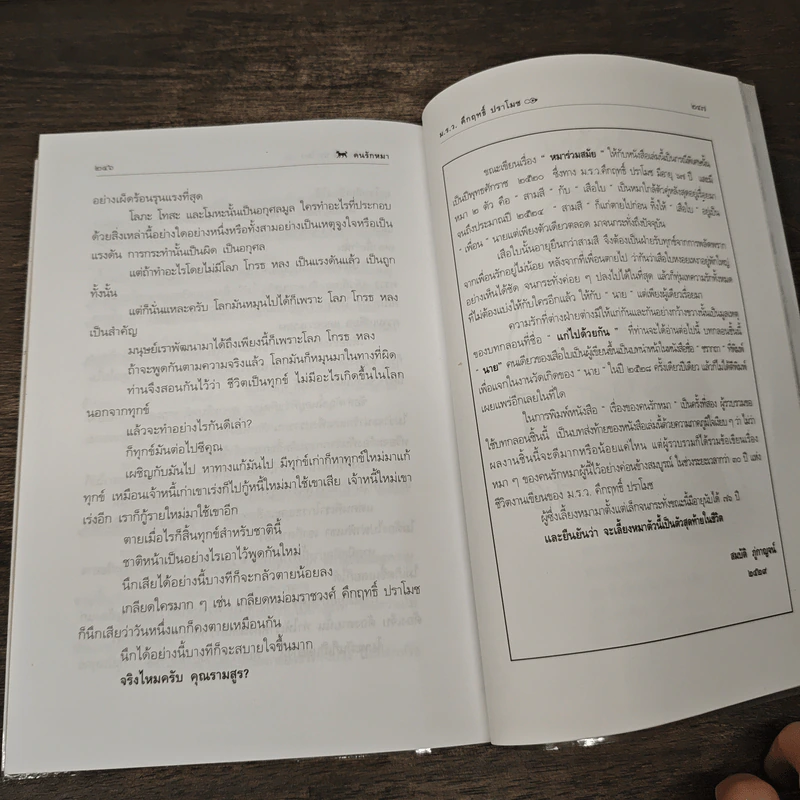 ๒๔๖
คนรักหมา
อย่างเผ็ดร้อนรุนแรงที่สุด
โลภะ โทสะ และโมหะนั้นเป็นอกุศลมูล ใครทำอะไรที่ประกอบ
ด้วยสิ่งเหล่านี้อย่างใดอย่างหนึ่งหรือทั้งสามอย่างเป็นเหตุจูงใจหรือเป็น
แรงดัน การกระทำนั้นเป็นผิด เป็นอกุศล
แต่ถ้าทำอะไรโดยไม่มีโลภ โกรธ หลง เป็นแรงดันแล้ว เป็นถูก
ทั้งนั้น
แต่ก็นั่นแหละครับ โลกมันหมุนไปได้ก็เพราะ โลภ โกรธ หลง
เป็นสำคัญ
มนุษย์เราพัฒนามาได้ถึงเพียงนี้ก็เพราะโลภ โกรธ หลง
ถ้าจะพูดกันตามความจริงแล้ว โลกมันก็หมุนมาในทางที่ผิด
ท่านจึงสอนกันไว้ว่า ชีวิตเป็นทุกข์ ไม่มีอะไรเกิดขึ้นในโลก
นอกจากทุกข์
แล้วจะทำอย่างไรกันดีเล่า?
ก็ทุกข์มันต่อไปซีคุณ
เผชิญกับมันไป หาทางแก้มันไป มีทุกข์เก่าก็หาทุกข์ใหม่มาแก้
ทุกข์ เหมือนเจ้าหนี้เก่าเขาเร่งก็ไปกู้หนี้ใหม่มาใช้เขาเสีย เจ้าหนี้ใหม่เขา
เร่งอีก เราก็กู้รายใหม่มาใช้เขาอีก
ตายเมื่อไรก็สิ้นทุกข์สำหรับชาตินี้
ชาติหน้าเป็นอย่างไรเอาไว้พูดกันใหม่
นึกเสียได้อย่างนี้บางทีก็จะกลัวตายน้อยลง
เกลียดใครมาก ๆ เช่น เกลียดหม่อมราชวงศ์ คึกฤทธิ์ ปราโมช
ก็นึกเสียว่าวันหนึ่งแกก็คงตายเหมือนกัน
นึกได้อย่างนี้บางทีก็จะสบายใจขึ้นมาก
จริงไหมครับ คุณรามสูร?
ม.ร.ว. คึกฤทธิ์ ปราโมช
๒๔๗
ขณะเขียนเรื่อง " หมาร่วมสมัย " ให้กับหนังสือเล่มนี้เป็นการมีพิเศษนั้น
เป็นปีพุทธศักราช ๒๕๒๐ ซึ่งทาง ม.ร.ว.คึกฤทธิ์ ปราโมช มีอายุ ๖๗ ปี และมี
หมา ๒ ตัว คือ " สามสี " กับ " เสือใบ " เป็นหมาใกล้ตัวคู่หลังสุดอยู่เรื่อยมา
จนถึงประมาณปี ๒๕๒๔ " สามสี " ก็แก่ตายไปก่อน ทิ้งให้ " เสือใบ " อยู่เป็น
" เพื่อน " นายแต่เพียงตัวเดียวตลอด มาจนกระทั่งถึงปัจจุบัน
เสือใบนั้นอายุยืนกว่าสามสี จึงต้องเป็นฝ่ายรับทุกข์จากการพลัดพราก
จากเพื่อนรักอยู่ไม่น้อย หลังจากที่เพื่อนตายไป ว่ากันว่าเสือใบหงอยเหงาอยู่พักใหญ่
อย่างเห็นได้ชัด จนกระทั่งค่อย ๆ ปลงไปได้ในที่สุด แล้วก็ทุ่มเทความรักทั้งหมด
ที่ไม่ต้องแบ่งให้กับใครอีกแล้ว ให้กับ " นาย " แต่เพียงผู้เดียวเรื่อยมา
ความรักที่ต่างฝ่ายต่างมีให้แก่กันและกันอย่างกว้างขวางนั้นเป็นมูลเหตุ
ของบทกลอนที่ชื่อ " แก่ไปด้วยกัน " ที่ท่านจะได้อ่านต่อไปนี้ บทกลอนชิ้นนี้
" นาย" คนเดียวของเสือใบเป็นผู้เขียนขึ้นเป็นบทนำหน้าในหนังสือชื่อ ที่พิมพ์
เพื่อแจกในงานวัดเกิดของ " นาย " ในปี ๒๕๒๘ ครั้งเดียวปีเดียว แล้วก็ไม่ได้ตีพิมพ์
เผยแพร่อีกเลยในที่ใด
ในการพิมพ์หนังสือ " เรื่องของคนรักหมา " เป็นครั้งที่สอง ผู้รวบรวมขอ
ใช้บทกลอนชิ้นนี้ เป็นบทส่งท้ายของหนังสือเล่มนี้ด้วยความภาคภูมิใจเงียบ ๆ ว่า ไม่ว่า
ผลงานชิ้นนี้จะดีมากหรือน้อยแค่ไหน แต่ผู้รวบรวมก็ได้รวมข้อเขียนเรื่อง
หมา ๆ ของคนรักหมาผู้นี้ไว้อย่างค่อนข้างสมบูรณ์ ในช่วงระยะเวลากว่า ๓๐ ปี แห่ง
ชีวิตงานเขียนของ ม.ร.ว. คึกฤทธิ์ ปราโมช
ผู้ซึ่งเลี้ยงหมามาตั้งแต่เล็กจนกระทั่งขณะนี้มีอายุนับได้ ๗๖ ปี
และยืนยันว่า จะเลี้ยงหมาตัวนี้เป็นตัวสุดท้ายในชีวิต
สมบัติ ภู่กาญจน์
๒๕๒๙